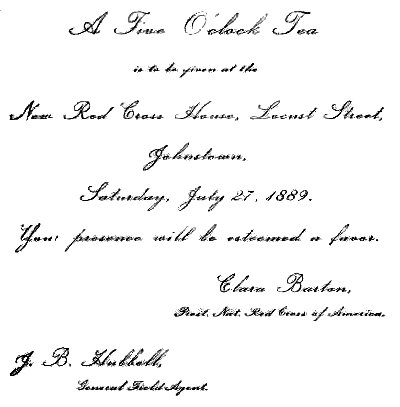 A Five O'clock Tea
is to be given at the
New Red Cross House, Locust Street,
Johnstown,
Saturday, July 27, 1889.
Your presence will be esteemed a favor.
Clara Barton,
Prest. Nat. Red Cross of America.
J. B. Hubbell,
General Field Agent.